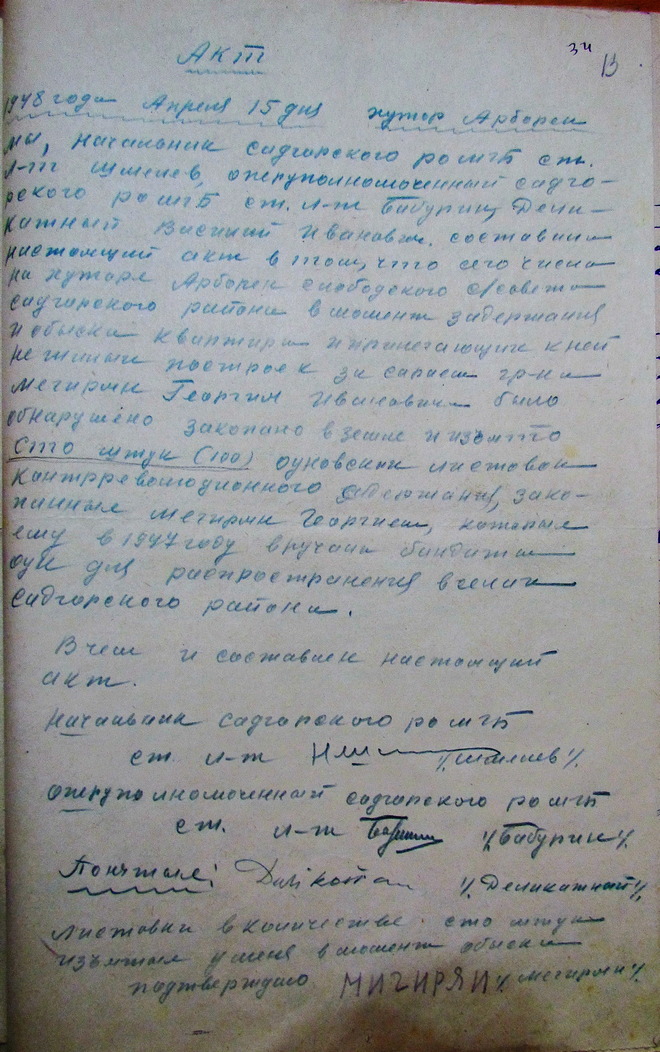 34
13
Акт
1948 года Апреля 15 дня хутор Арборен
мы, начальник садгорского ро мгб ст.
л-т Шмелев, оперуполномоченный садго-
рского ро мгб ст. л-т Бабурин, Дели-
катный Василий Иванович. составили
настоящий акт в том, что сего числа
на хуторе Арборен слободского с/совета
садгорского района в момент задержания
и обыска квартиры и прилегающих к ней
не жилых построек за сараем гр-на
мегирян Георгия Ивановича было
обнаружено закопано в земле и изъято
Сто штук (100) оуновских листовок
контрреволюционного содержания, зако-
панные мегирян Георгием, которые
ему в 1947 году вручали бандиты
оун для распространения в селах
садгорского района.
В чем и составлен настоящий
акт.
Начальник садгорского ро мгб
ст. л-т /Шмелев/.
оперуполномоченный садгорского ро мгб
ст. л-т /Бабурин/.
Понятые: /Деликатный/,
Листовки в количестве сто штук
изъятые у меня в момент обыска
подтверждаю МИГИРЯН /мегирян/.